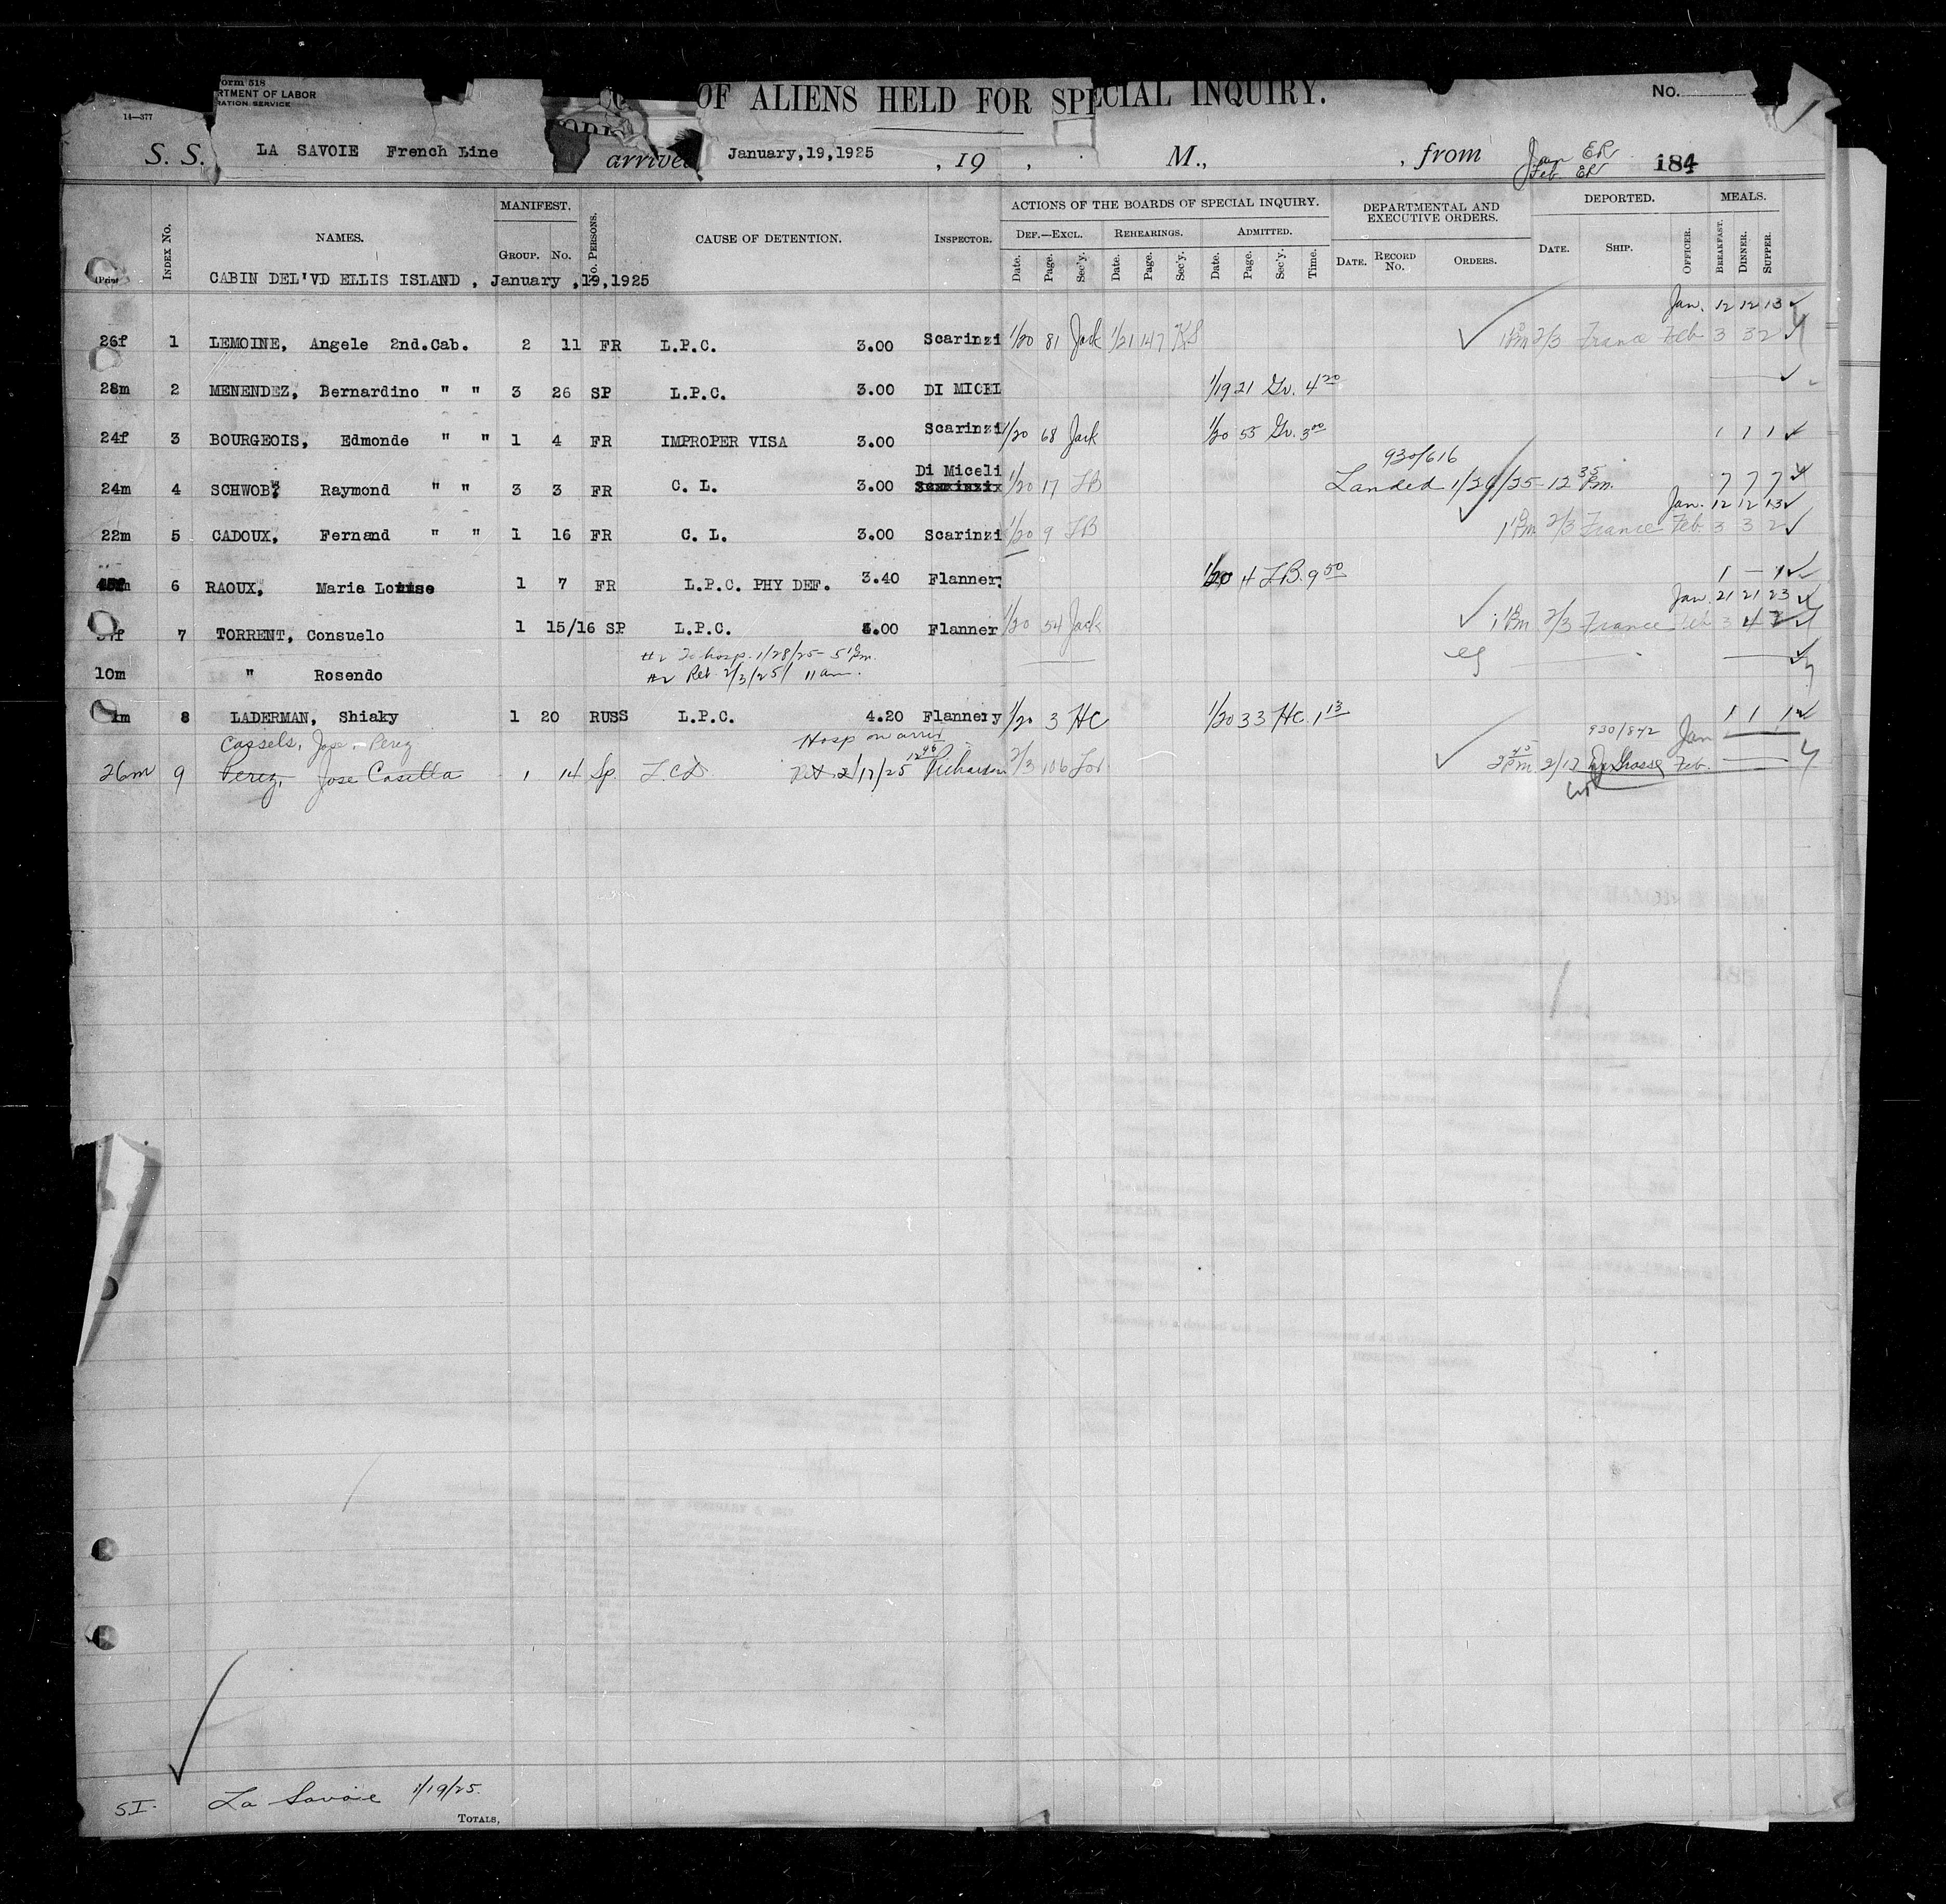 Form 518
RTMENT OF LABOR
RATION SERVICE
14—377
OF ALIENS HELD FOR SPECIAL INQUIRY.
No.
S. S. LA SAVOIE French Line arrived January,19,1925 , 19 , M., , from Jan ER 184
Feb. ER
INDEX No. NAMES. MANIFEST. GROUP. No. No. PERSONS. CAUSE OF DETENTION. INSPECTOR. ACTIONS OF THE BOARDS OF SPECIAL INQUIRY. DEF.—EXCL. Date. Page. Sec'y. REHEARINGS. Date. Page. Sec'y. ADMITTED. Date. Page. Sec'y. Time. DEPARTMENTAL AND EXECUTIVE ORDERS. DATE. RECORD No. ORDERS. DEPORTED. DATE. SHIP. OFFICER. MEALS. BREAKFAST. DINNER. SUPPER.
CABIN DEL'VD ELLIS ISLAND , January ,19,1925
Jan. 12 12 13
26f 1 LEMOINE, Angele 2nd.Cab. 2 11 FR L.P.C. 3.00 Scarinzi 1/20 81 Jack 1/21 147 KS 2/3 France Feb 3 3 2
28m 2 MENENDEZ, Bernardino " " 3 26 SP L.P.C. 3.00 DI MICEL 1/19 21 Gv. 4 20
24f 3 BOURGEOIS, Edmonde " " 1 4 FR IMPROPER VISA 3.00 Scarinzi 1/20 68 Jack 1/20 55 Gv. 3 00 1 1 1
930/616
Di Miceli
24m 4 SCHWOB, Raymond " " 3 3 FR C. L. 3.00 1/20 17 LB Landed 1/26/25 - 12 35 Pm. 7 7 7
Jan. 12 12 13
22m 5 CADOUX, Fernand " " 1 16 FR C. L. 3.00 Scarinzi 1/20 9 LB 2/3 France Feb 3 3 2
6 RAOUX, Marie Louise 1 7 FR L.P.C. PHY DEF. 3.40 Flanner 1/20 4 LB. 9 50 1 — 1
Jan. 21 21 23
7 TORRENT, Consuelo 1 15/16 SP L.P.C. Flanner 1/20 54 Jack 2/3 France Feb 3 4
#2 To hosp. 1/28/25 - 5 10 Pm.
10m " Rosendo #2 Ret. 2/3/25 11 am.
8 LADERMAN, Shiaky 1 20 RUSS L.P.C. 4.20 Flannery 1/20 3 HC 1/20 33 HC 1 13 1 1 1
Cassels, Jose - Perez Hosp on arriv 930/842 Jan
26m 9 Perez, Jose Casella 1 14 Sp. LCD Ret 2/17/25 Richardson 2/3 106 2/17 Feb.
S.I. La Savoie 1/19/25.
TOTALS,